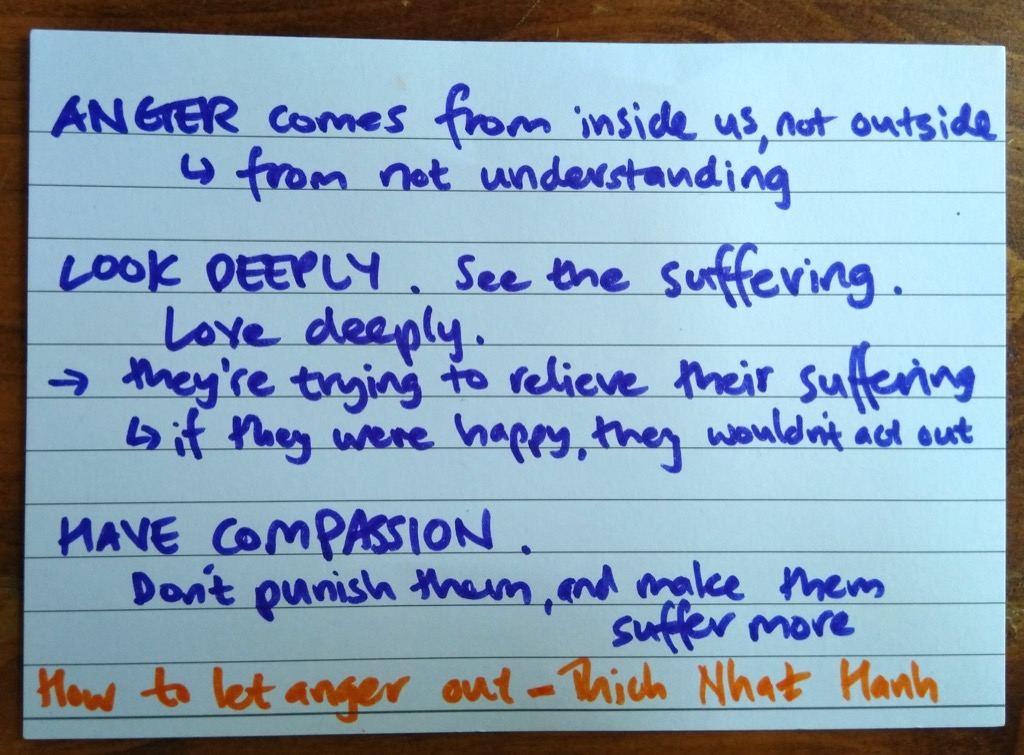 ANGER comes from inside us, not outside
↳ from not understanding
LOOK DEEPLY. See the suffering.
Love deeply.
→ they're trying to relieve their suffering
↳ if they were happy, they wouldn't act out
HAVE COMPASSION.
Don't punish them, and make them
suffer more
How to let anger out - Thich Nhat Hanh